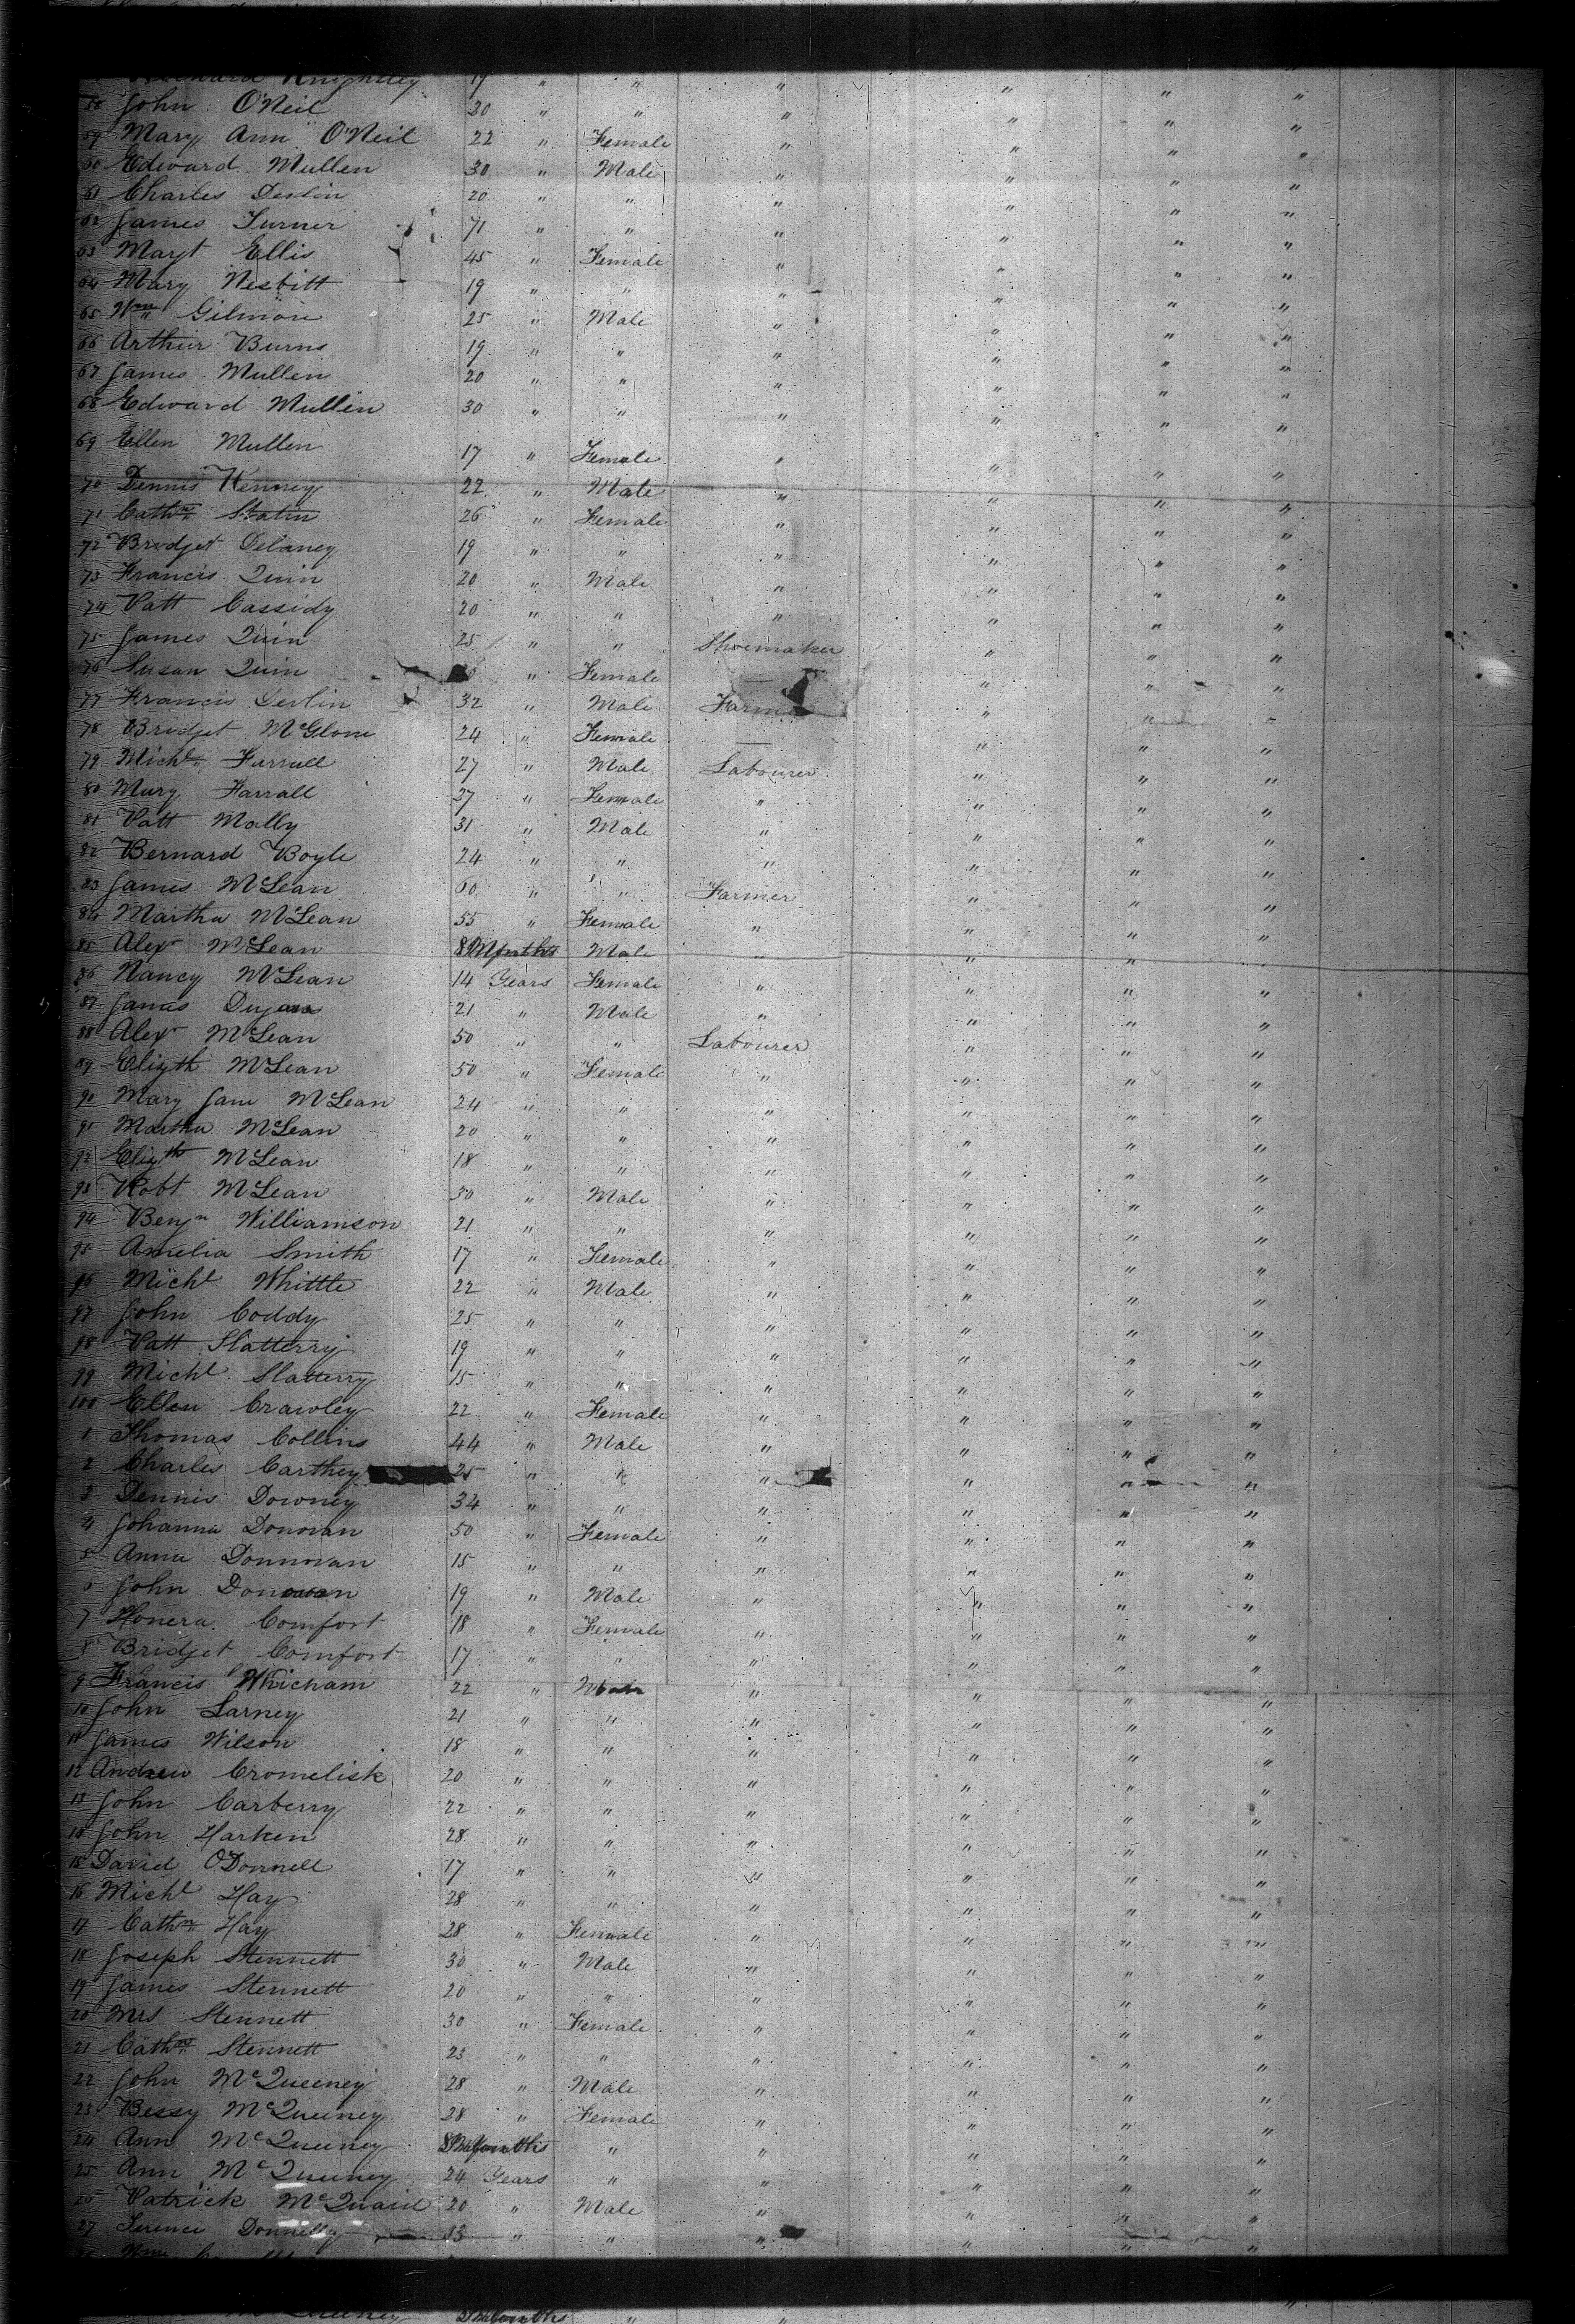 Knightley 19 " " " " " "
58 John O'Neil 20 " " " " " "
59 Mary Ann O'Neil 22 " Female " " " "
60 Edward Mullen 30 " Male " " " "
61 Charles Devlin 20 " " " " " "
62 James Turner 71 " " " " " "
63 Margt Ellis 45 " Female " " " "
64 Mary Nesbitt 19 " " " " " "
65 Wm Gilmore 25 " Male " " " "
66 Arthur Burns 19 " " " " " "
67 James Mullen 20 " " " " " "
68 Edward Mullin 30 " " " " " "
69 Ellen Mullen 17 " Female " " " "
70 Dennis Kenney 22 " Male " " " "
71 Cathne Statin 26 " Female " " " "
72 Bridget Delaney 19 " " " " " "
73 Francis Quin 20 " Male " " " "
74 Patt Cassidy 20 " " " " " "
75 James Quin 25 " " Shoemaker " " "
76 Susan Quin " Female — " " "
77 Francis Devlin 32 " Male Farm " " "
78 Bridget McGlone 24 " Female — " " "
79 Michl Farrall 27 " Male Labourer " " "
80 Mary Farrall 27 " Female " " " "
81 Patt Mally 31 " Male " " " "
82 Bernard Boyle 24 " " " " " "
83 James McLean 60 " " Farmer " " "
84 Martha McLean 55 " Female " " " "
85 Alexr McLean 8 Months Male " " " "
86 Nancy McLean 14 Years Female " " " "
87 James 21 " Male " " " "
88 Alexr McLean 50 " " Labourer " " "
89 Elizth McLean 50 " Female " " " "
90 Mary Jane McLean 24 " " " " " "
91 Martha McLean 20 " " " " " "
92 Elizth McLean 18 " " " " " "
93 Robt McLean 30 " Male " " " "
94 Benjn Williamson 21 " " " " " "
95 Amelia Smith 17 " Female " " " "
96 Michl Whittle 22 " Male " " " "
97 John Coddy 25 " " " " " "
98 Patt Slatterry 19 " " " " " "
99 Michl Slatterry 15 " " " " " "
100 Ellen Crawley 22 " Female " " " "
1 Thomas Collins 44 " Male " " " "
2 Charles Carthey 25 " " " " " "
3 Dennis Downey 34 " " " " " "
4 Johanna Donovan 50 " Female " " " "
5 Anna Donnovan 15 " " " " " "
6 John Donovan 19 " Male " " " "
7 Honera Comfort 18 " Female " " " "
8 Bridget Comfort 17 " " " " " "
9 Francis Whicham 22 " Male " " " "
10 John Larney 21 " " " " " "
11 James Wilson 18 " " " " " "
12 Andrew Cromelisk 20 " " " " " "
13 John Carberry 22 " " " " " "
14 John Harken 28 " " " " " "
15 David O'Donnell 17 " " " " " "
16 Michl Hay 28 " " " " " "
17 Cathne Hay 28 " Female " " " "
18 Joseph Stennett 30 " Male " " " "
19 James Stennett 20 " " " " " "
20 Mrs Stennett 30 " Female " " " "
21 Cathne Stennett 23 " " " " " "
22 John McQueeney 28 " Male " " " "
23 Bessy McQueeney 28 " Female " " " "
24 Ann McQueeney Months " " " " "
25 Ann McQueeney 24 Years " " " " "
26 Patrick McQuaid 20 " Male " " " "
27 Terence Donnelly 33 " " " " " "